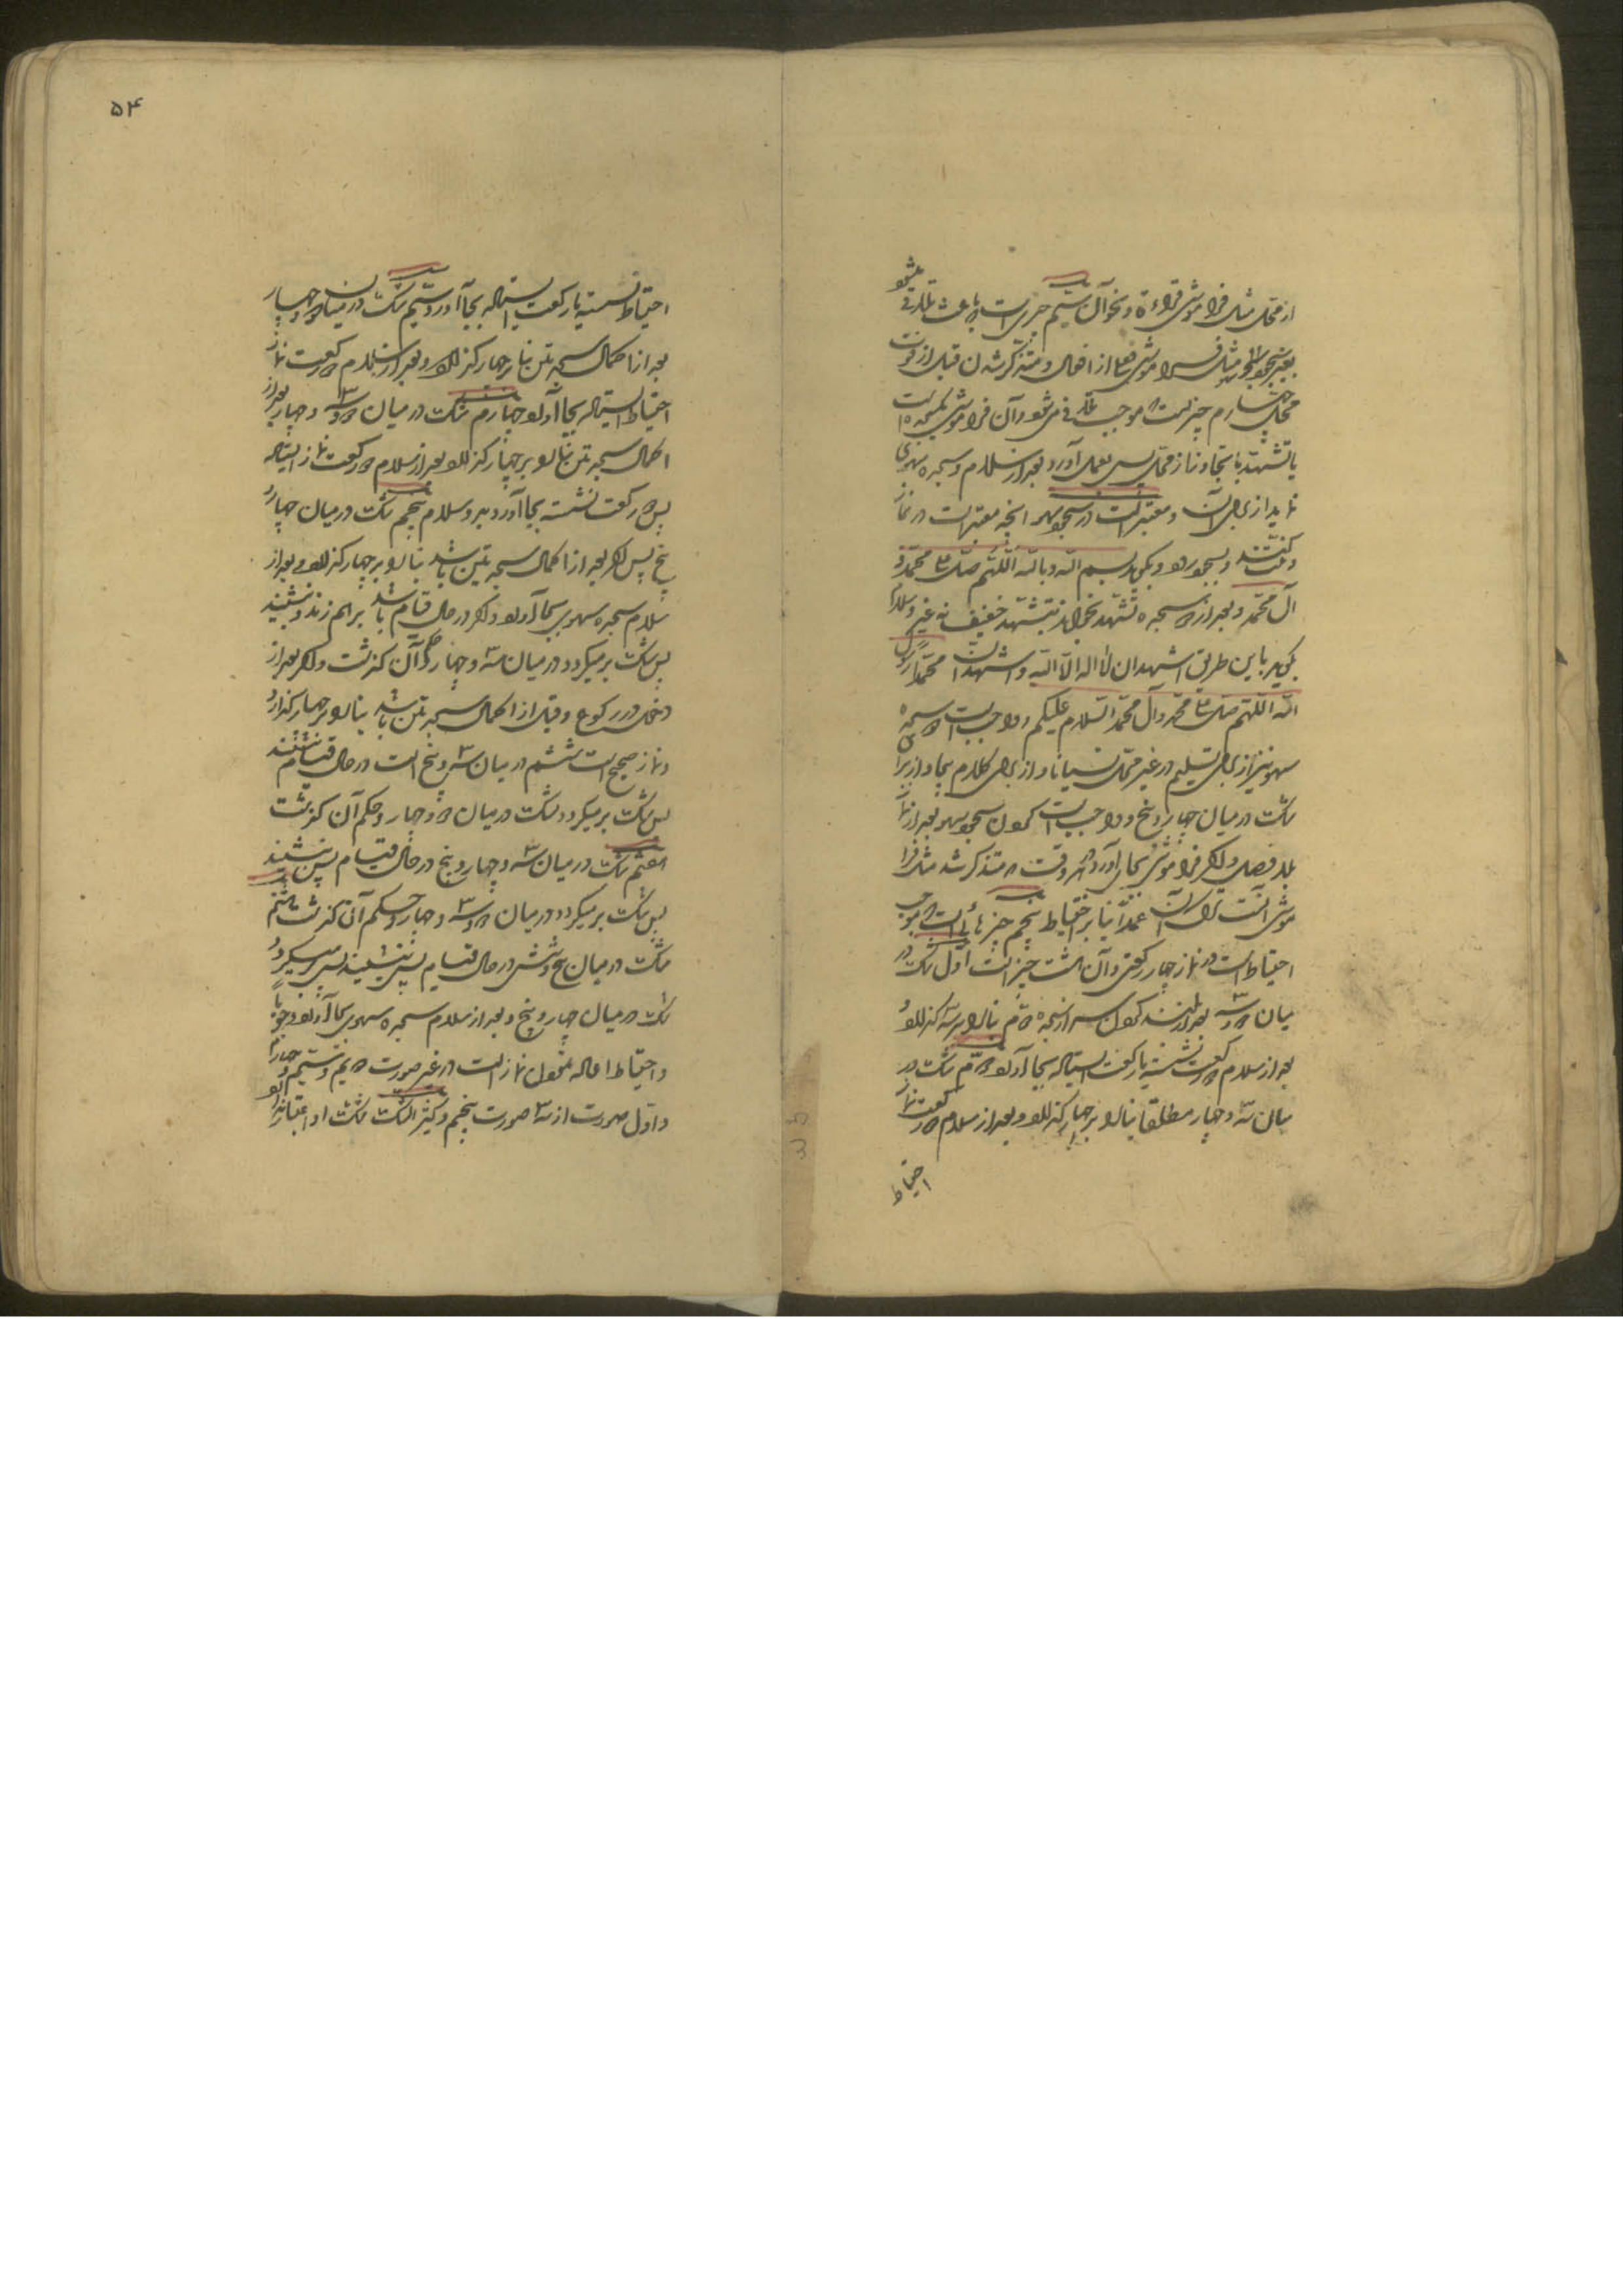 از محل مثل فراموشی قراءة و نحو آن سیم چیزی است که باعث تلافی میشود
بغیر سجود سهو مثل فراموشی فعلی از افعال و متذکر شدن قبل از فوت
محل چهارم چیزیست که موجب تلافی می شود و آن فراموشی یکسجده است
یا تشهد با تجاوز از محل پس بعمل آورد بعد از سلام و سجده سهوی
نماید از برای آن و معتبر است در سجود سهو آنچه معتبر است در نماز
و نیت کند و بسجود رود و بگوید بسم الله و بالله اللهم صل علی محمد و
آل محمد و بعد از دو سجده تشهد بخواند تشهد خفیف نه غیر و سلام
بگوید باین طریق اشهد ان لا اله الا الله و اشهد ان محمدا رسول
الله اللهم صل علی محمد و آل محمد السلام علیکم و واجب است دو سجده
سهو نیز از برای تسلیم در غیر محل نسیانا و از برای کلام بیجا و از برای
شک در میان چهار و پنج و واجب است کردن سجود سهو بعد از نماز
بلا فصل و اگر فراموش شود بجای آورد هر وقت که متذکر شد مثل فرا
موشی است ترک آن عمدا بنا بر احتیاط پنجم چیزهائی است که موجب
احتیاط است در نماز چهار رکعتی و آن هشت چیز است اول شک در
میان دو و سه بعد از بلند کردن سر از سجده دوم بنا را بر سه گذارد و
بعد از سلام دو رکعت نشسته یا رکعت ایستاده بجا آورد دوم شک در
میان سه و چهار مطلقا بنا را بر چهار گذارد و بعد از سلام دو رکعت نماز
احتیاط
۵۴
احتیاط نشسته یا رکعت ایستاده بجا آورد سیم شک در میان دو و چهار
بعد از اکمال سجدتین بنا بر چهار گذارد و بعد از سلام دو رکعت نماز
احتیاط ایستاده بجا آورد چهارم شک در میان دو و سه و چهار بعد از
اکمال سجدتین بنا را بر چهار گذارد و بعد از سلام دو رکعت نماز ایستاده
پس دو رکعت نشسته بجا آورد بدو سلام پنجم شک در میان چهار و
پنج پس اگر بعد از اکمال سجدتین باشد بنا را بر چهار گذارد و بعد از
سلام سجده سهوی بجا آورد و اگر در حال قیام باشد برهم زند و بنشیند
پس شک بر میگردد در میان سه و چهار و حکم آن گذشت و اگر بعد از
دخول در رکوع و قبل از اکمال سجدتین باشد بنا را بر چهار گذارد
و نماز صحیح است ششم در میان سه و پنج است در حال قیام بنشیند
پس شک بر میگردد بشک در میان دو و چهار و حکم آن گذشت
هفتم شک در میان سه و چهار و پنج در حال قیام پس بنشیند
پس شک بر میگردد در میان دو و سه و چهار و حکم آن گذشت هشتم
شک در میان پنج و شش در حال قیام پس بنشیند پس بر میگردد
شک در میان چهار و پنج و بعد از سلام سجده سهوی بجا آورد وجوبا
و احتیاط اعاده نمودن نماز است در غیر صورت دویم و سیم و چهارم
و اول صورت از سه صورت پنجم و کثیر الشک شک او اعتبار ندارد